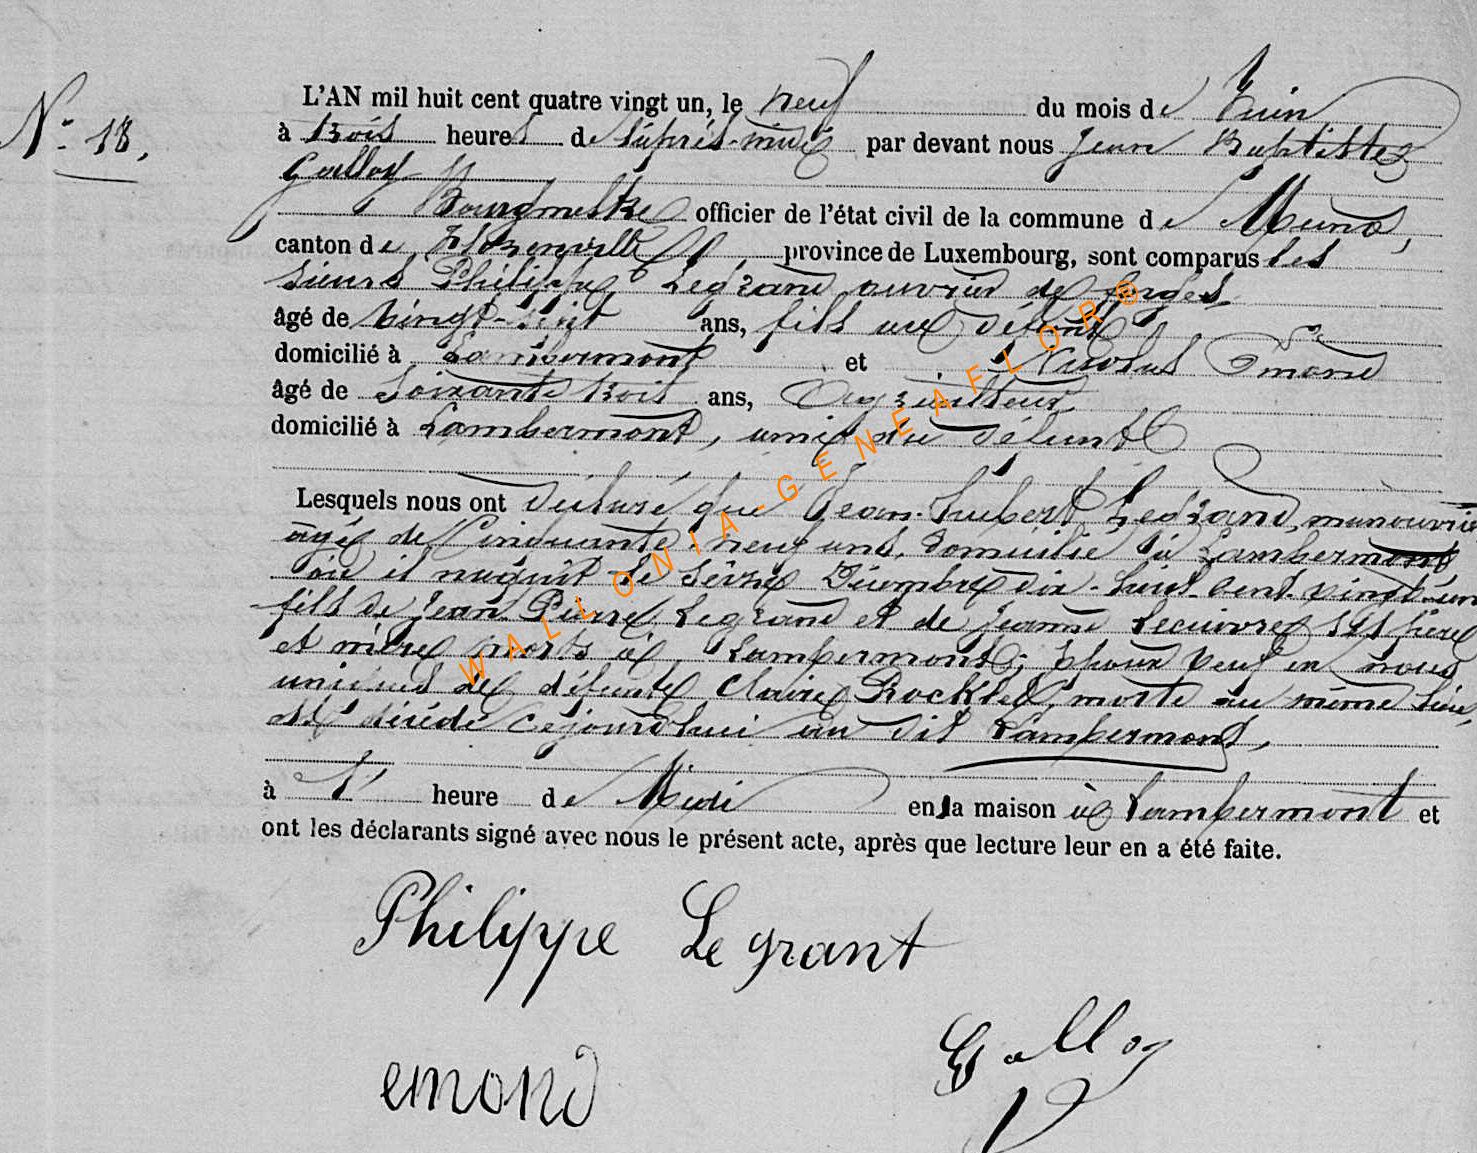 N° 18.
L'AN mil huit cent quatre vingt un, le neuf du mois de Juin
à trois heures de l'après-midi par devant nous Jean Baptiste
Galloy
Bourgmestre officier de l'état civil de la commune de Muno,
canton de Florenville, province de Luxembourg, sont comparus les
sieurs Philippe Legrand ouvrier de forges
âgé de vingt- ans, fils du défunt
domicilié à Lambermont et Nicolas Emond
âgé de soixante trois ans, Cultivateur
domicilié à Lambermont, ami du défunt
Lesquels nous ont déclaré que Jean-Hubert Legrand, manouvrier
âgé de Cinquante-neuf ans, domicilié à Lambermont
où il naquit le seize Décembre dix-huit-cent-vingt-un
fils de Jean Pierre Legrand et de Jeanne Lecuivre ses père
et mère morts à Lambermont; époux veuf en noces
unique de défunte Claire Rocklet, morte au même lieu,
est décédé cejourd'hui au dit Lambermont,
à 1 heure de Midi en la maison à Lambermont et
ont les déclarants signé avec nous le présent acte, après que lecture leur en a été faite.
Philippe Legrant
Galloy
emond
WALLONIA-GENEAFLOR®